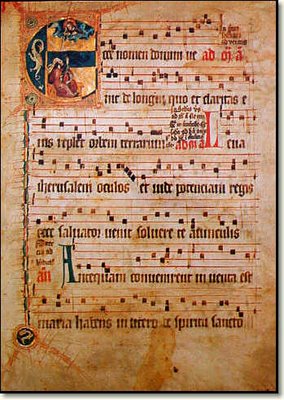 Ecce nomen domini ve
nit de longin quo et claritas e
ius replet orbem terrarum Leua
iherusalem oculos et uide potenciam regis
ecce saluator uenit soluere te a uinculis
Antequam conuenirent in uenta est
maria habens in utero de spiritu sancto